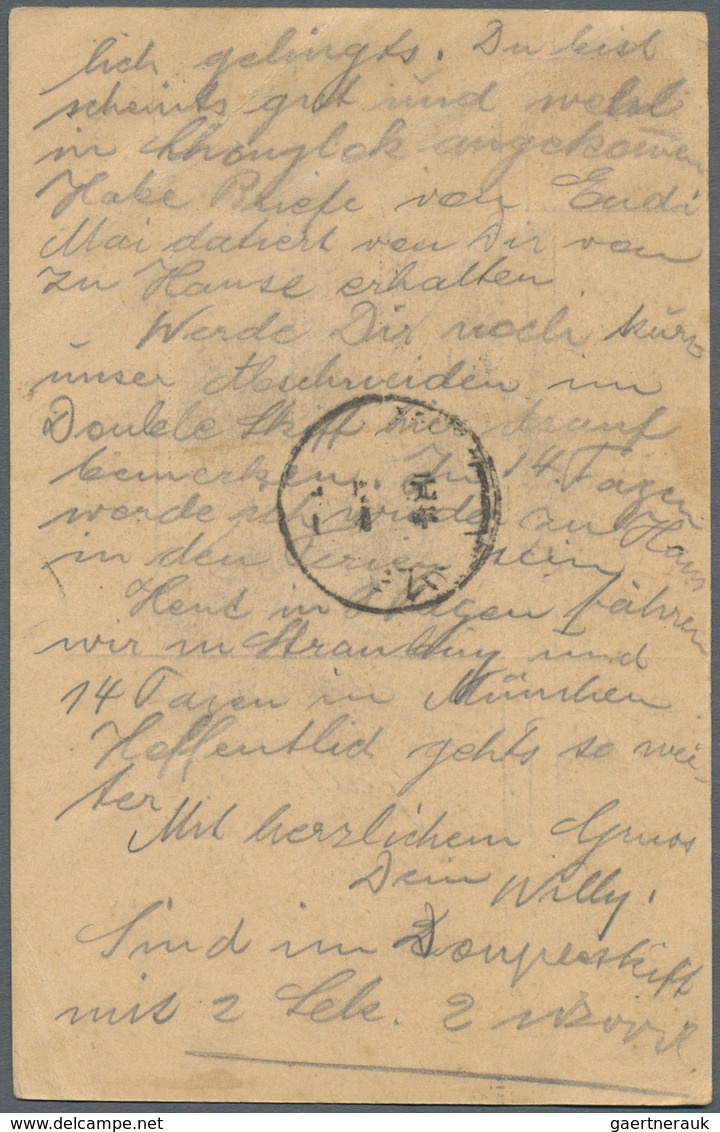 lich gelingts. Du bist
scheints gut und wohl
in angekommen
Habe Briefe von Endi
Mai datiert von Dir von
zu Hause erhalten
Werde Dir noch kurz
unser Abschneiden im
Double Skiff drauf
bemerken. In 14 Tagen
werde ich wieder zu Haus
in den Ferien sein
Heut in 8 Tagen fahren
wir in Straubing und
14 Tagen in München
Hoffentlich gehts so wei-
ter
Mit herzlichem Gruss
Dein Willy.
Sind im Doupleskiff
mit 2 Sek. 2
gaertnerauk